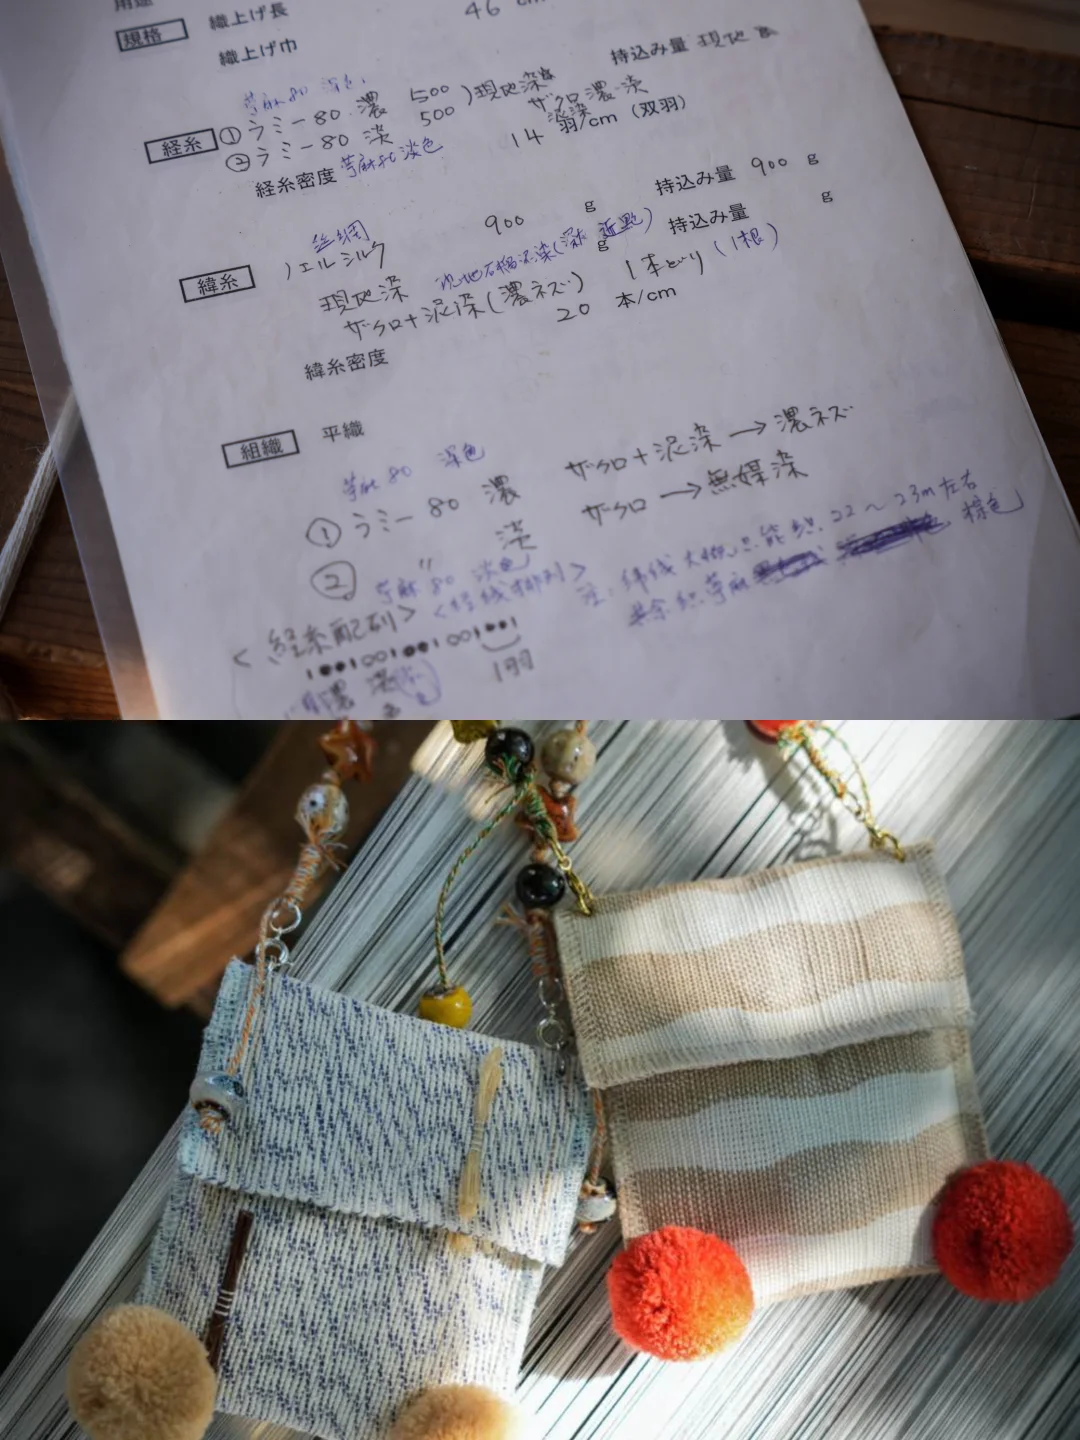 用途
規格 織上げ長 46 cm
織上げ巾
持込み量 現地
苧麻80 深色
経糸 ① ラミー80 濃 500 )現地染
② ラミー80 淡 500 ザクロ濃淡
泥染
苧麻80 淡色
経糸密度 14 羽/cm (双羽)
丝绸 900 g 持込み量 900 g
緯糸 ノエルシルク g 持込み量 g
現地染
ザクロ+泥染(濃ネズ) 1本どり (1根)
緯糸密度 20 本/cm
組織 平織
苧麻80 深色
① ラミー80 濃 ザクロ+泥染→濃ネズ
② 〃 淡 ザクロ→無媒染
苧麻80 淡色
<経糸配列> <经线排列>
注: 纬线大概只能织 22~23m左右
棕色
1羽
濃 淡